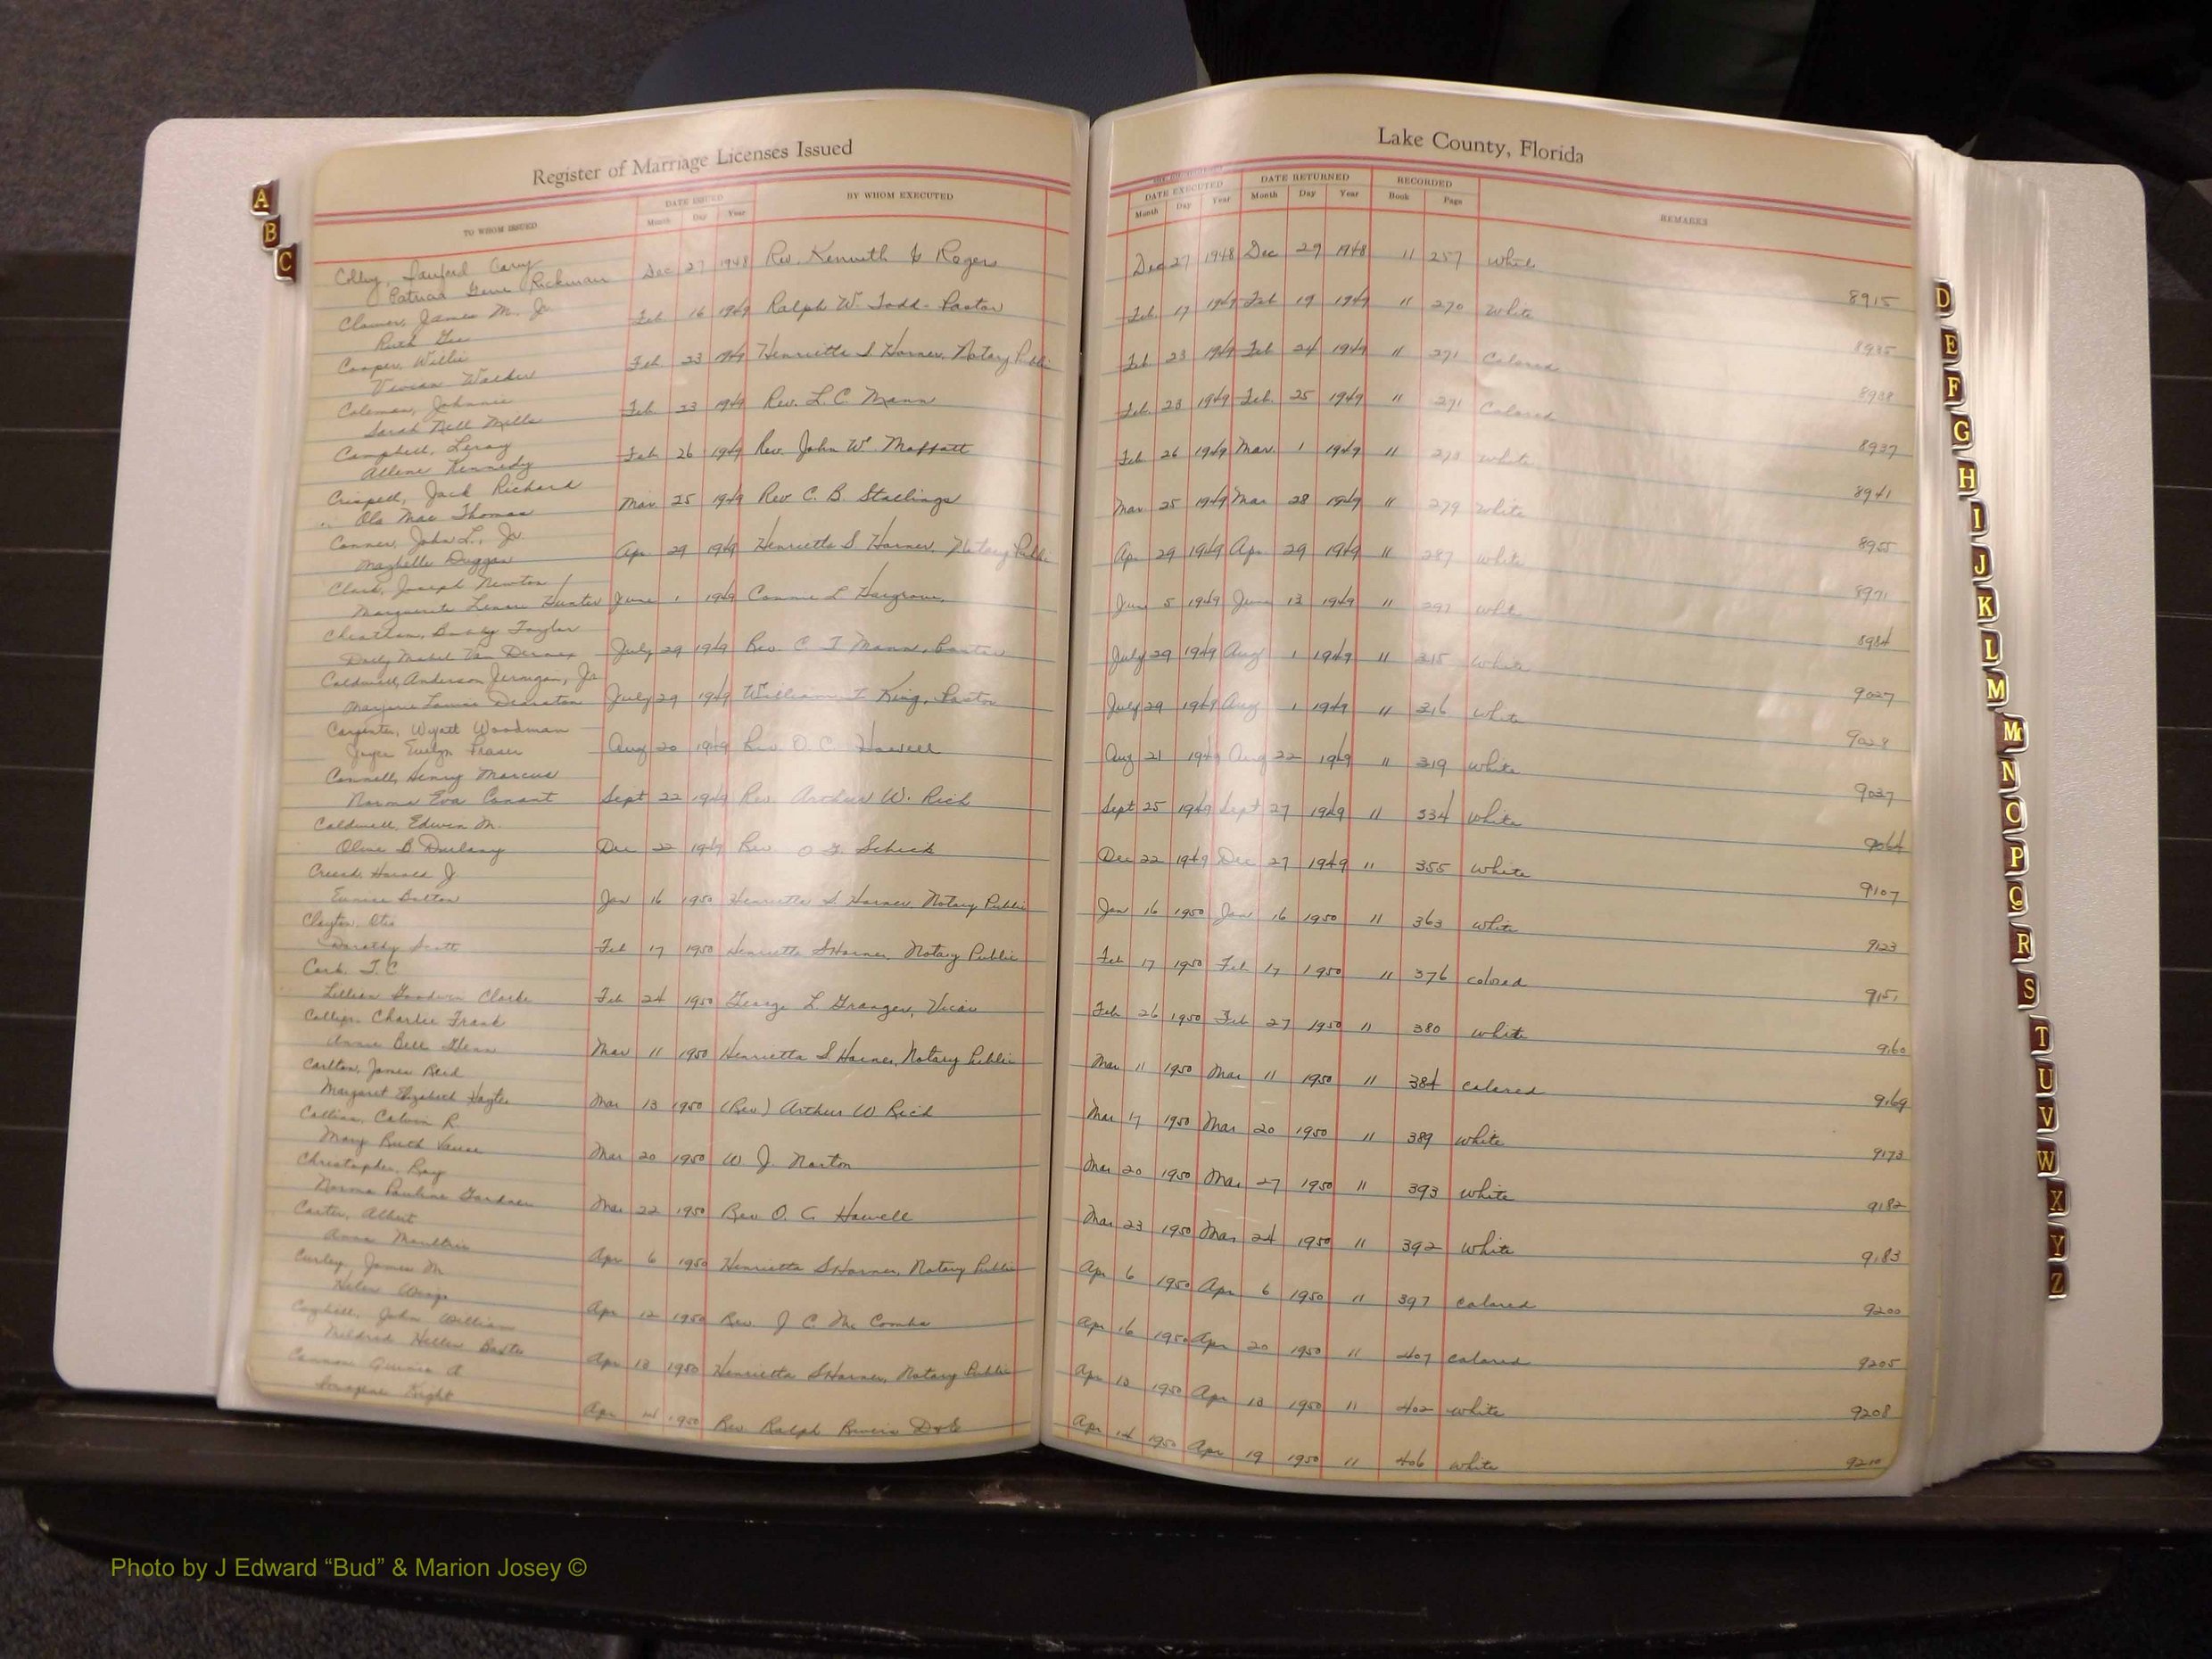 Register of Marriage Licenses Issued
Lake County, Florida
TO WHOM ISSUED
DATE ISSUED
Month Day Year
BY WHOM EXECUTED
DATE EXECUTED
Month Day Year
DATE RETURNED
Month Day Year
RECORDED
Book Page
REMARKS
Patricia Gene Rickman Dec 27 1948 Rev. Kenneth G Rogers Dec 27 1948 Dec 29 1948 11 257 White 8915
James M. Jr.
Ruth Feb 16 1949 Ralph W. Todd - Pastor Feb 17 1949 Feb 19 1949 11 270 White 8935
Cooper, Willie
Vivian Walker Feb 23 1949 Henrietta S Horner, Notary Public Feb 23 1949 Feb 24 1949 11 271 Colored 8938
Coleman, Johnnie
Sarah Nell Mills Feb 23 1949 Rev. L. C. Mann Feb 23 1949 Feb. 25 1949 11 271 Colored 8937
Campbell, Leroy
Allene Kennedy Feb 26 1949 Rev. John W. Moffatt Feb 26 1949 Mar. 1 1949 11 273 White 8941
Jack Richard
Ola Mae Thomas Mar 25 1949 Rev C. B. Stallings Mar 25 1949 Mar 28 1949 11 279 White 8955
Conner, John L., Jr.
Maybelle Duggan Apr 29 1949 Henrietta S. Horner, Notary Public Apr 29 1949 Apr 29 1949 11 287 White 8971
Clark, Joseph Newton
Marguerite Lenore Hunter June 1 1949 L Hargrove June 5 1949 June 13 1949 11 297 White 8984
Taylor
Mabel Van July 29 1949 Rev C T Mann, Pastor July 29 1949 Aug 1 1949 11 315 White 9027
Caldwell, Anderson Jernigan, Jr
Marjorie Louise July 29 1949 William T King, Pastor July 29 1949 Aug 1 1949 11 316 White 9028
Carpenter, Wyatt Woodman
Joyce Evelyn Fraser Aug 20 1949 Rev. O. C. Howell Aug 21 1949 Aug 22 1949 11 319 White 9037
Connell, Henry Marcus
Norma Eva Conant Sept 22 1949 Rev Arthur W. Rich Sept 25 1949 Sept 27 1949 11 334 White 9064
Caldwell, Edwin M.
Olive B Dec 22 1949 Rev O G. Schick Dec 22 1949 Dec 27 1949 11 355 White 9107
Harold J.
Eunice Dalton Jan 16 1950 Henrietta S Horner, Notary Public Jan 16 1950 Jan 16 1950 11 363 white 9123
Clayton, Otis
Dorothy Scott Feb 17 1950 Henrietta S Horner, Notary Public Feb 17 1950 Feb 17 1950 11 376 colored 9151
T. C.
Lillian Goodwin Clarke Feb 24 1950 George L. Granger, Vicar Feb 26 1950 Feb 27 1950 11 380 white 9160
Charlie Frank
Annie Bell Mar 11 1950 Henrietta S Horner, Notary Public Mar 11 1950 Mar 11 1950 11 384 Colored 9169
Carlton, James Reid
Margaret Elizabeth Mar 13 1950 (Rev) Arthur W Rich Mar 17 1950 Mar 20 1950 11 389 White 9173
Collins, Calvin R.
Mary Ruth Vause Mar 20 1950 W J. Norton Mar 20 1950 Mar 27 1950 11 393 White 9182
Christopher, Roy
Norma Pauline Gardner Mar 22 1950 Rev O. C Howell Mar 23 1950 Mar 24 1950 11 392 White 9183
Carter, Albert
Anna Moultrie Apr 6 1950 Henrietta S Horner, Notary Public Apr 6 1950 Apr 6 1950 11 397 Colored 9200
James M
Helen Apr 12 1950 Rev. J C. McCombs Apr 16 1950 Apr 20 1950 11 407 Colored 9205
John William
Mildred Apr 13 1950 Henrietta S Horner, Notary Public Apr 13 1950 Apr 13 1950 11 402 White 9208
Cannon A
Imogene Knight Apr 14 1950 Rev. Ralph Apr 14 1950 Apr 19 1950 11 406 White 9210
A
B
C
D
E
F
G
H
I
J
K
L
M
Mc
N
O
P
Q
R
S
T
U
V
W
X
Y
Z
Photo by J Edward “Bud” & Marion Josey ©